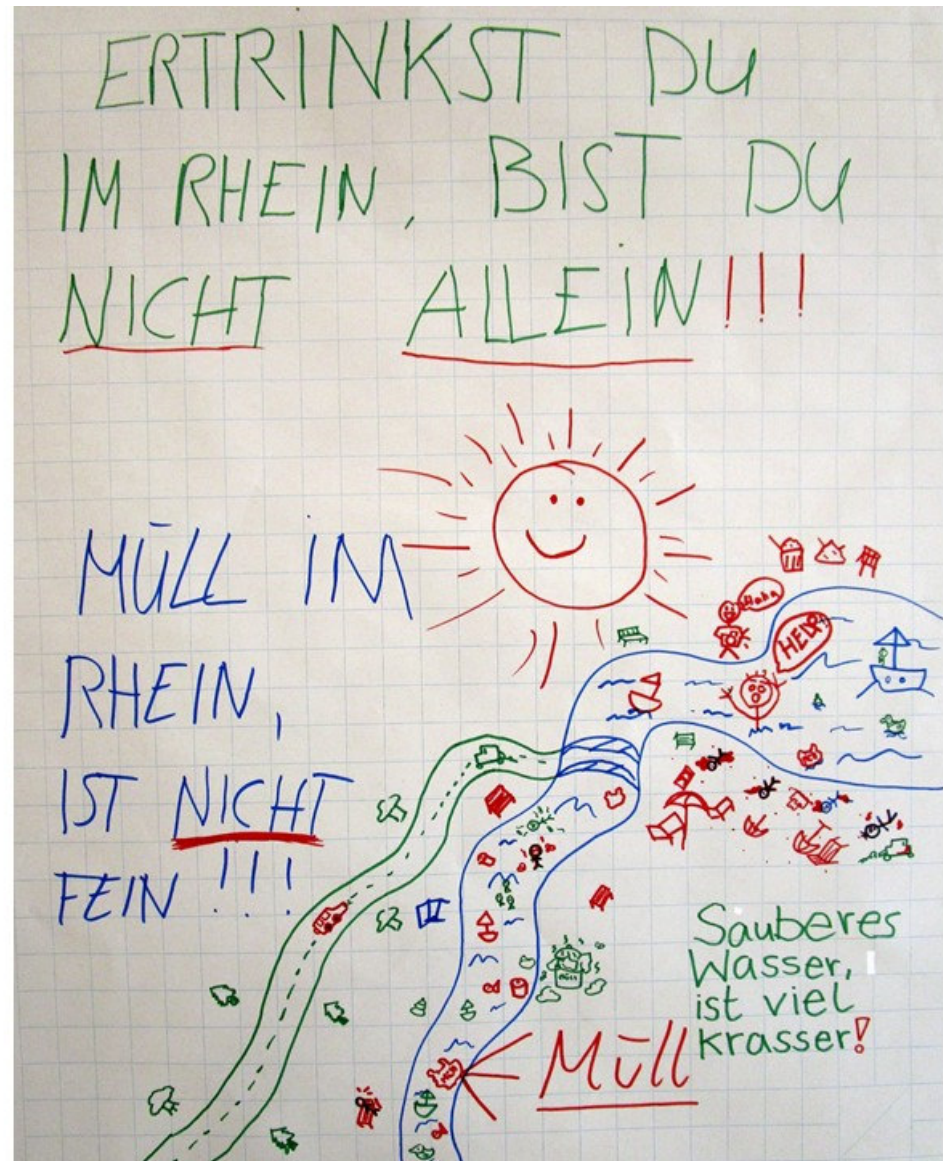 ERTRINKST DU
IM RHEIN, BIST DU
NICHT ALLEIN!!!
MÜLL IM
RHEIN,
IST NICHT
FEIN!!!
Haha
HELP
Sauberes
Wasser,
ist viel
krasser!
Müll